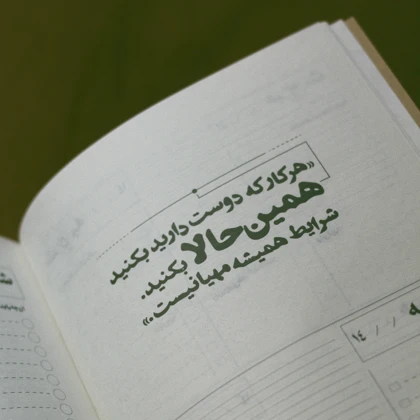 «هر کار که دوست دارید بکنید
همین حالا بکنید.
شرایط همیشه مهیا نیست.»
/ / ۱۴